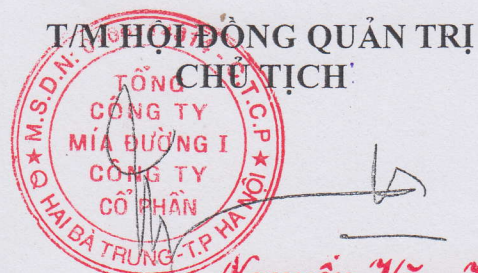 T/M HỘI ĐỒNG QUẢN TRỊ
CHỦ TỊCH
TỔNG
CÔNG TY
MÍA ĐƯỜNG I
CÔNG TY
CỔ PHẦN
M.S.D.N:
C.T.C.P
Q HAI BÀ TRƯNG-T.P HÀ NỘI